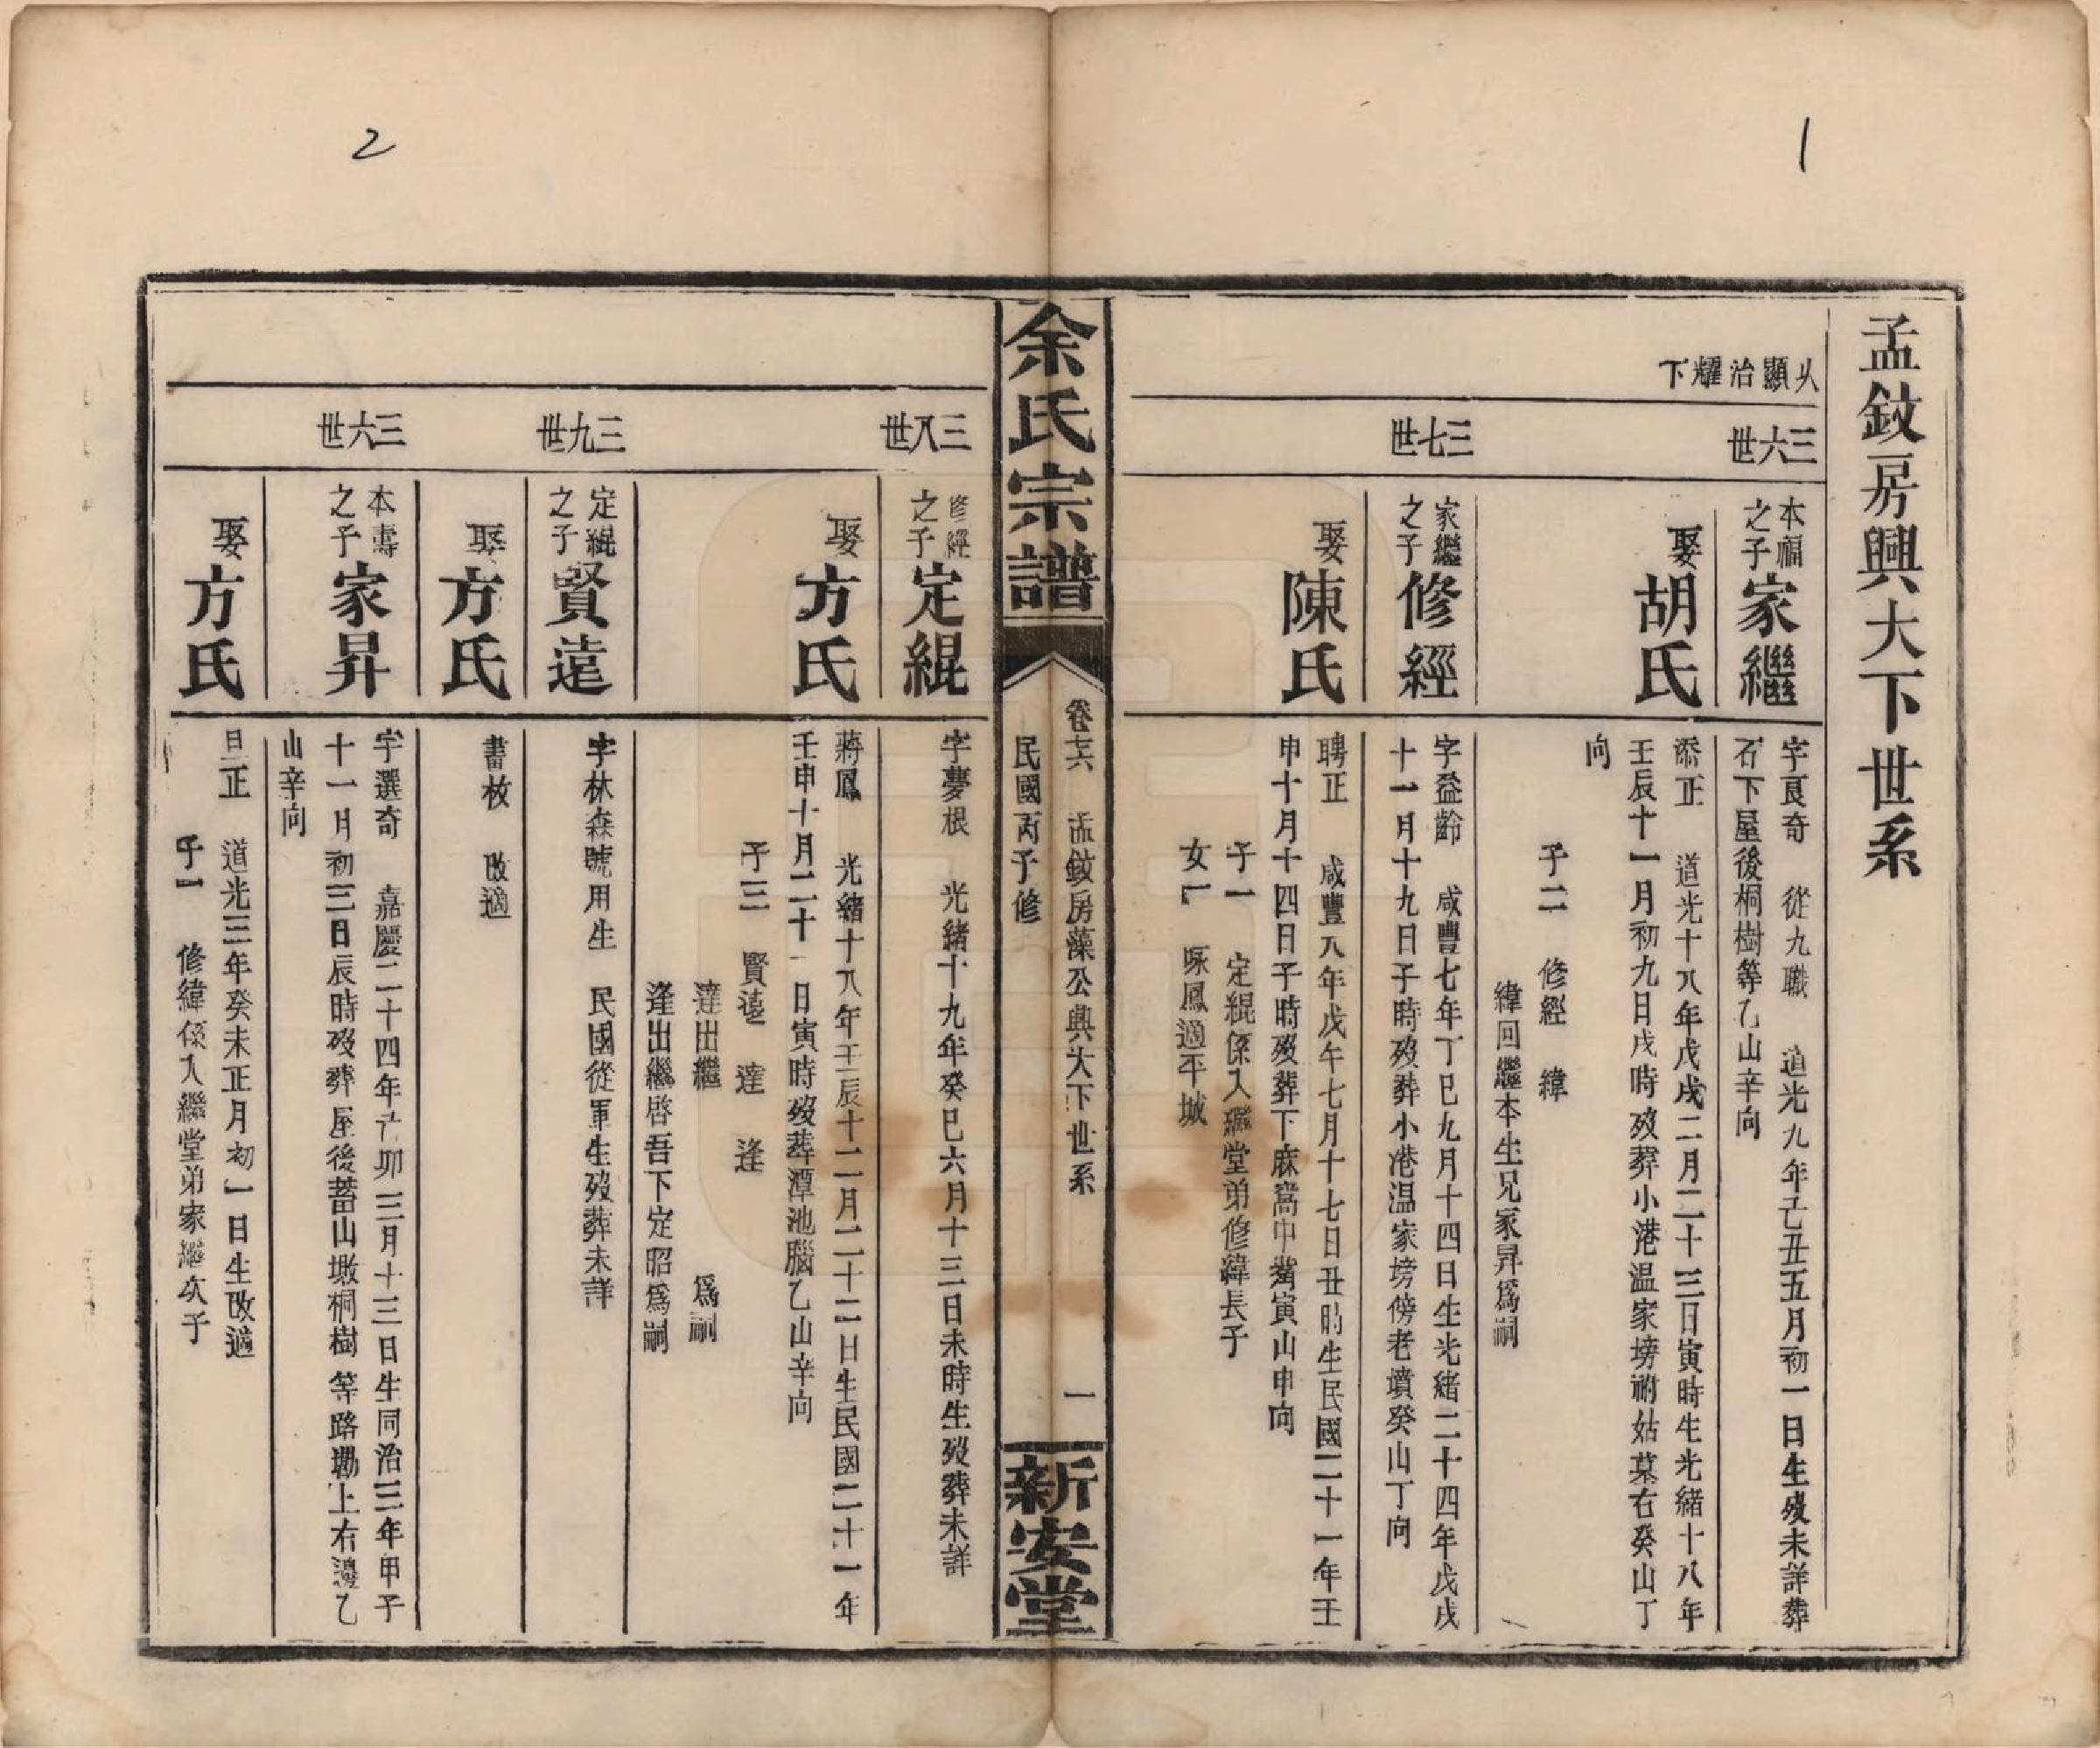 1
孟鈫房興大下世系
从顯治耀下
三六世
本福之子
家繼
字良奇　從九職　道光九年己丑五月初一日生歿未詳葬
石下屋後桐樹等乙山辛向
娶胡氏
添正　道光十八年戊戌二月二十三日寅時生光緒十八年
壬辰十一月初九日戌時歿葬小港温家塝祔姑墓右癸山丁
向
子二　修經　緯
緯回繼本生兄家昇爲嗣
三七世
家繼之子
修經
字益齡　咸豐七年丁巳九月十四日生光緒二十四年戊戌
十一月十九日子時歿葬小港温家塝傍老墳癸山丁向
娶陳氏
聘正　咸豐八年戊午七月十七日丑時生民國二十一年壬
申十月十四日子時歿葬下庥窩中嘴寅山申向
子一　定緄係入繼堂弟修緯長子
女一　啄鳳適平城
余氏宗譜
卷六　孟鈫房藻公興大下世系　一
民國丙子修
新安堂
2
三八世
修經之子
定緄
字夢根　光緒十九年癸巳六月十三日未時生歿葬未詳
娶方氏
蔣鳳　光緒十八年壬辰十二月二十二日生民國二十一年
壬申十月二十一日寅時歿葬潭池腦乙山辛向
子三　賢遠　達　逢
達出繼　爲嗣
逢出繼啓吾下定昭爲嗣
三九世
定緄之子
賢遠
字林森號用生　民國從軍生歿葬未詳
娶方氏
書枚　改適
三六世
本壽之子
家昇
字選奇　嘉慶二十四年己卯三月十三日生同治三年甲子
十一月初三日辰時歿葬屋後蓄山墩桐樹等路墈上右邊乙
山辛向
娶方氏
旦正　道光三年癸未正月初一日生改適
子一　修緯係入繼堂弟家繼次子